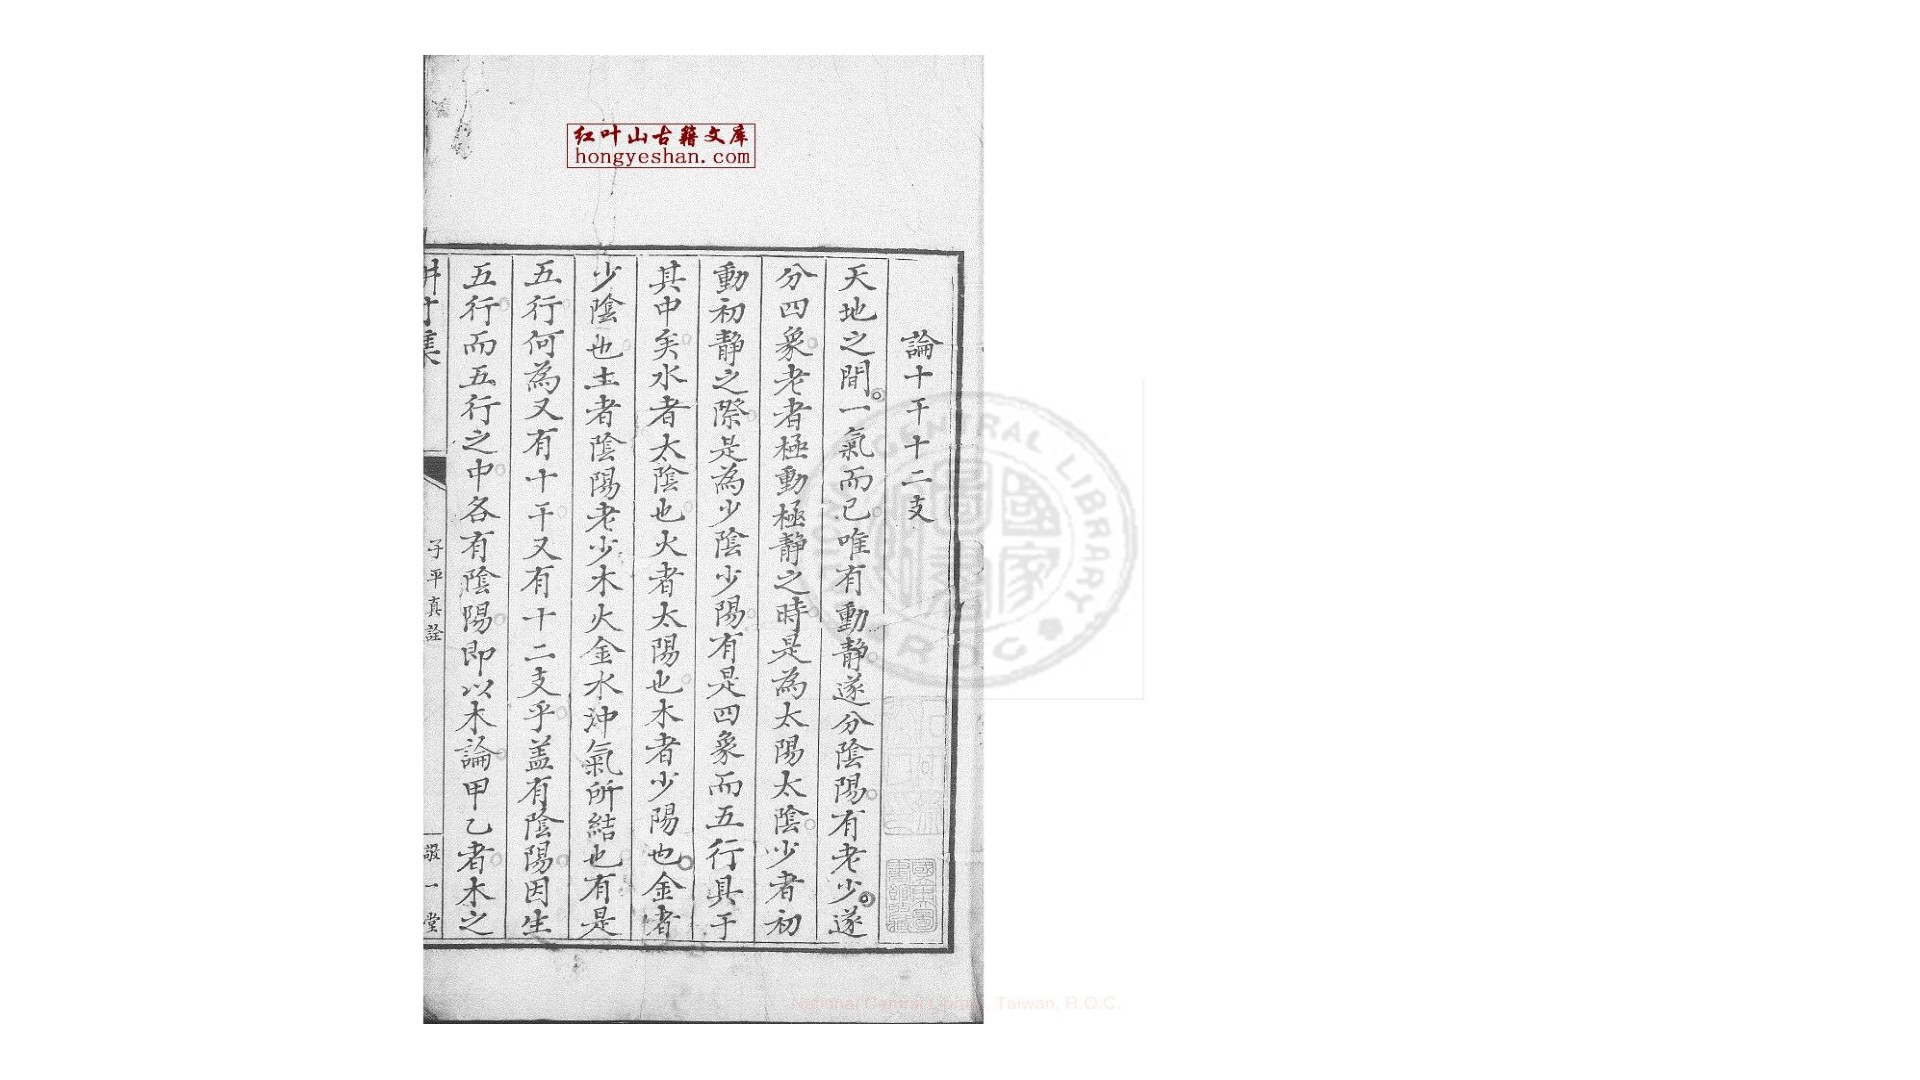 红叶山古籍文库
hongyeshan.com
論十干十二支
天地之間一氣而已唯有動靜遂分陰陽有老少遂
分四象老者極動極靜之時是為太陽太陰少者初
動初靜之際是為少陰少陽有是四象而五行具于
其中矣水者太陰也火者太陽也木者少陽也金者
少陰也土者陰陽老少木火金水沖氣所結也有是
五行何為又有十干又有十二支乎盖有陰陽因生
五行而五行之中各有陰陽即以木論甲乙者木之
子平真詮
敬一堂
CENTRAL LIBRARY
R.O.C
國家圖書館
National Central Library, Taiwan, R.O.C.